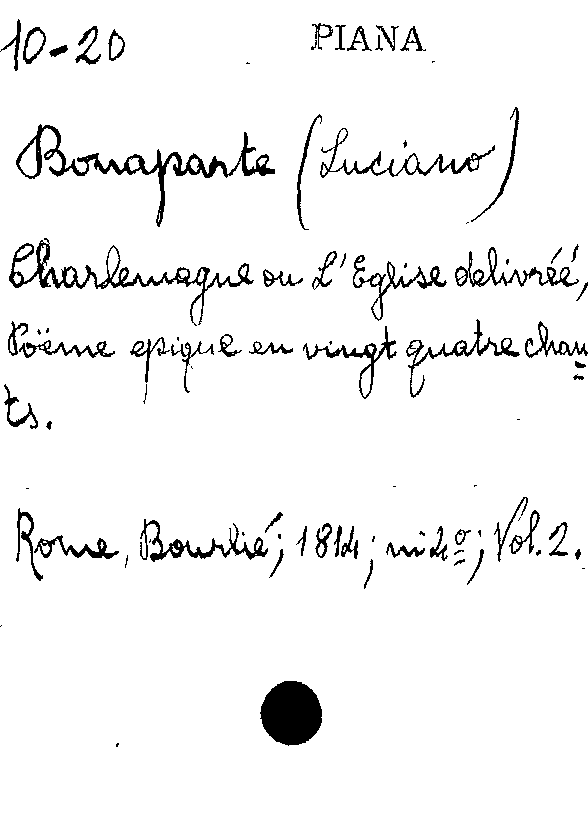 10-20 PIANA
Bonaparte (Luciano)
Charlemagne ou L'Eglise delivréé,
Poëme epique en vingt quatre chan=
ts.
Rome, Bourlié; 1814; in 4º; Vol. 2.